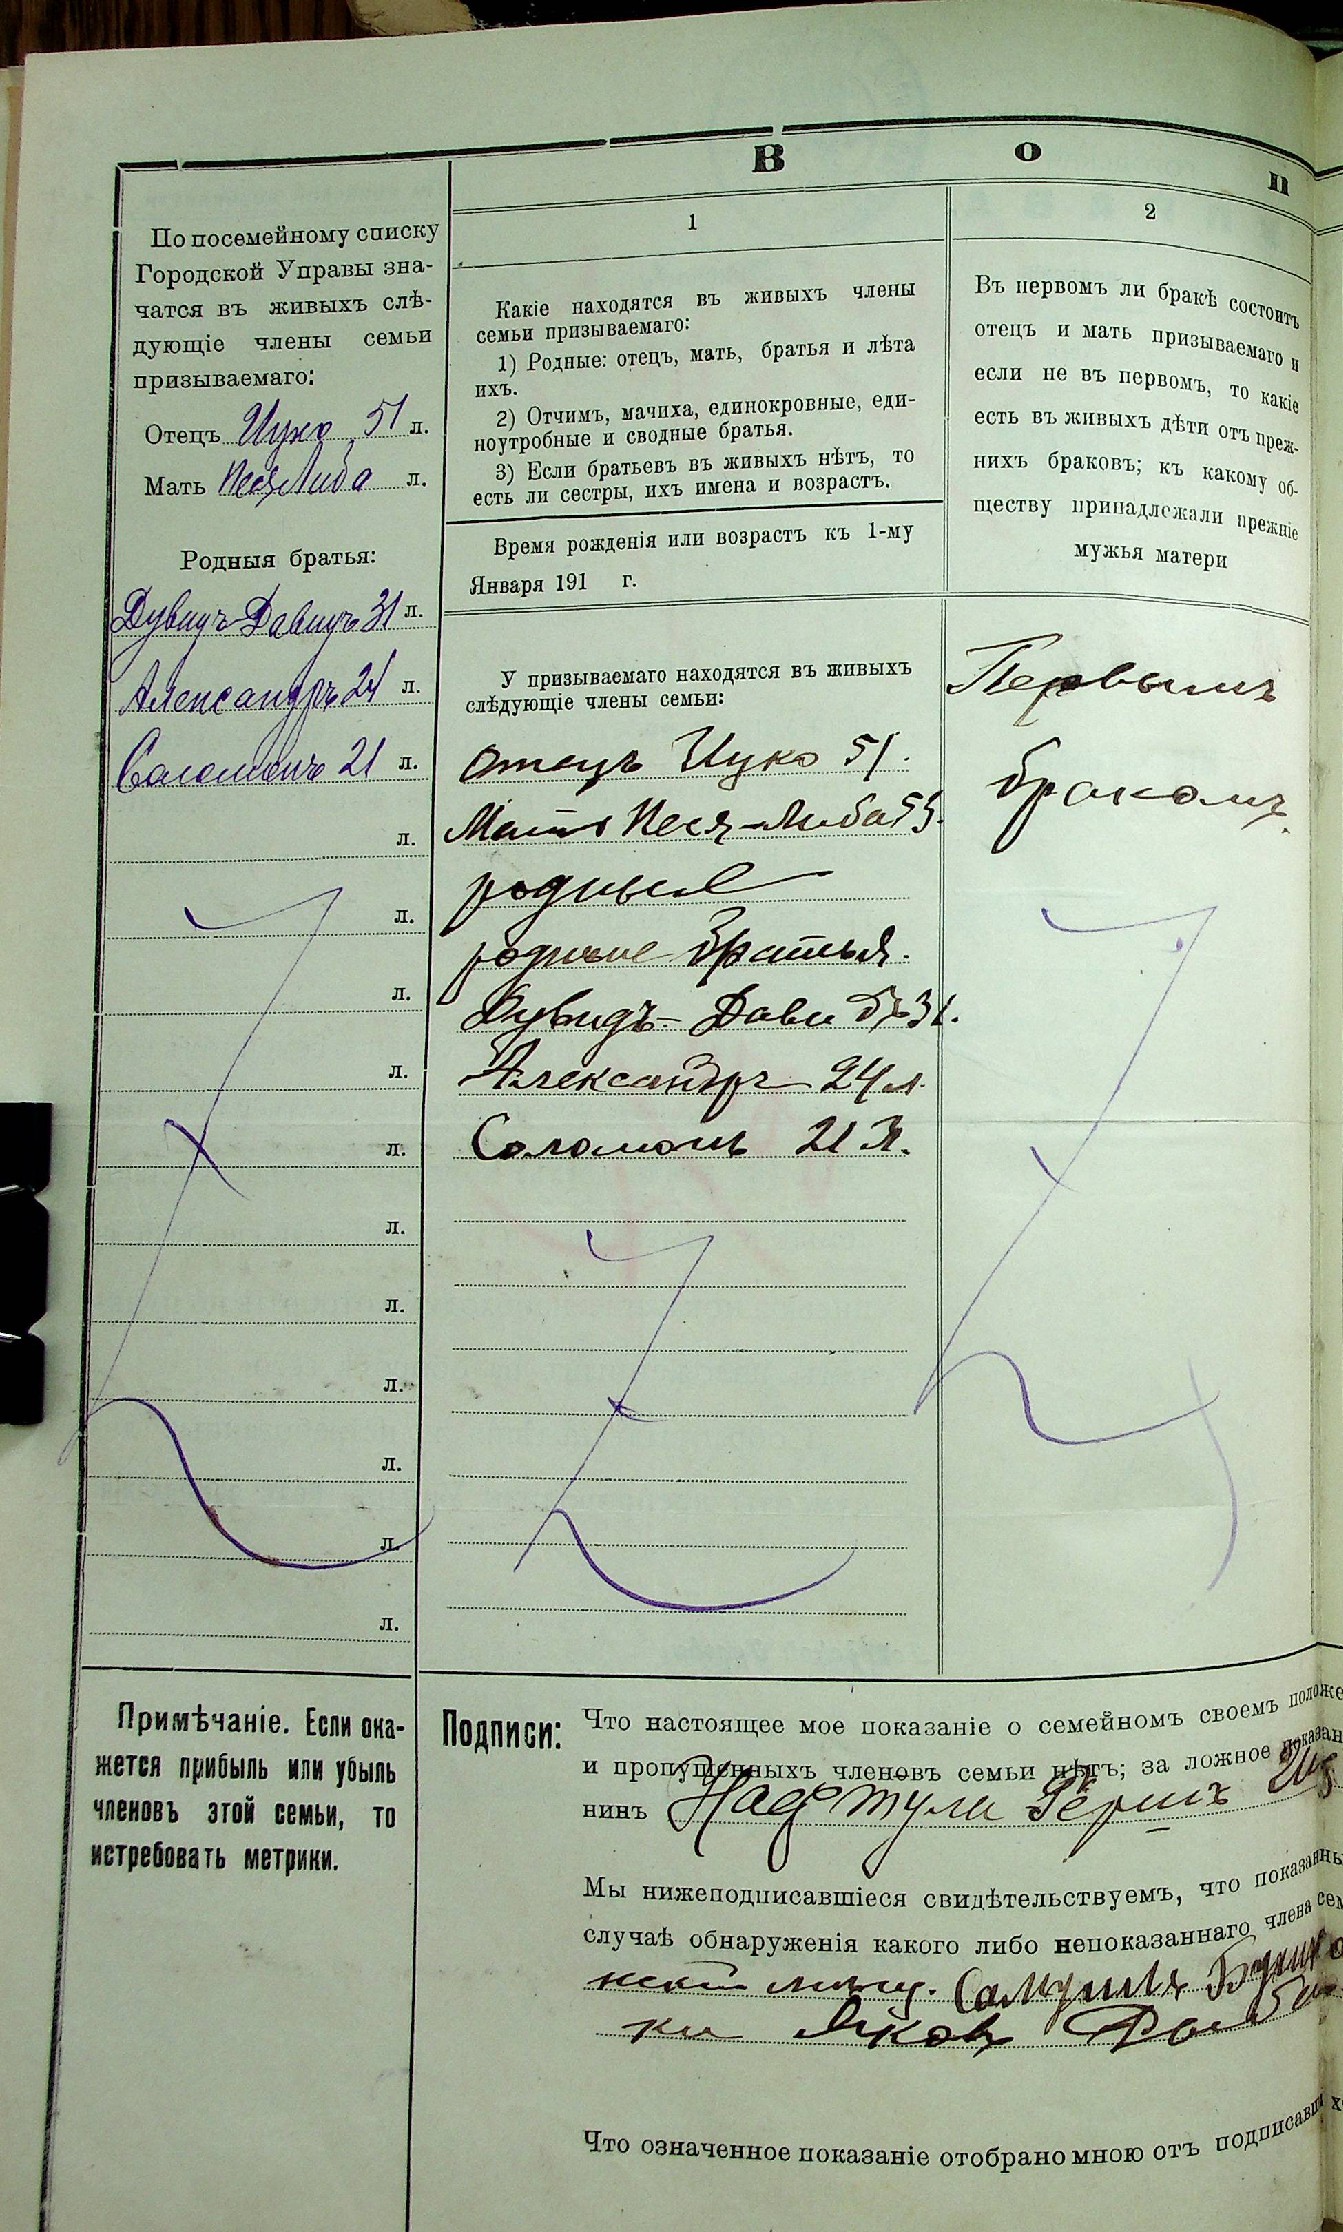 В о п
По посемейному списку
Городской Управы зна-
чатся въ живыхъ слѣ-
дующіе члены семьи
призываемаго:
Отецъ Ицко 51 л.
Мать Песя Либа л.
Родныя братья:
Дувидъ-Давидъ 31 л.
Александръ 24 л.
Соломонъ 21 л.
л.
л.
л.
л.
л.
л.
л.
л.
л.
л.
л.
1
Какіе находятся въ живыхъ члены
семьи призываемаго:
1) Родные: отецъ, мать, братья и лѣта
ихъ.
2) Отчимъ, мачиха, единокровные, еди-
ноутробные и сводные братья.
3) Если братьевъ въ живыхъ нѣтъ, то
есть ли сестры, ихъ имена и возрастъ.
Время рожденія или возрастъ къ 1-му
Января 191 г.
У призываемаго находятся въ живыхъ
слѣдующіе члены семьи:
отецъ Ицко 51.
Мать Песя-Либа
родные
родные братья.
Дувидъ-Давидъ 31.
Александръ 24 л.
Соломонъ 21 л.
2
Въ первомъ ли бракѣ состоитъ
отецъ и мать призываемаго и
если не въ первомъ, то какіе
есть въ живыхъ дѣти отъ преж-
нихъ браковъ; къ какому об-
ществу принадлежали прежніе
мужья матери
Первымъ
бракомъ.
Примѣчаніе. Если ока-
жется прибыль или убыль
членовъ этой семьи, то
истребовать метрики.
Подписи:
Что настоящее мое показаніе о семейномъ своемъ положе
и пропущенныхъ членовъ семьи нѣтъ; за ложное показан
нинъ Нафтули Гершъ
Мы нижеподписавшіеся свидѣтельствуемъ, что показанны
случаѣ обнаруженія какого либо непоказаннаго члена сем
Самуилъ
ки Яковъ
Что означенное показаніе отобрано мною отъ подписавши